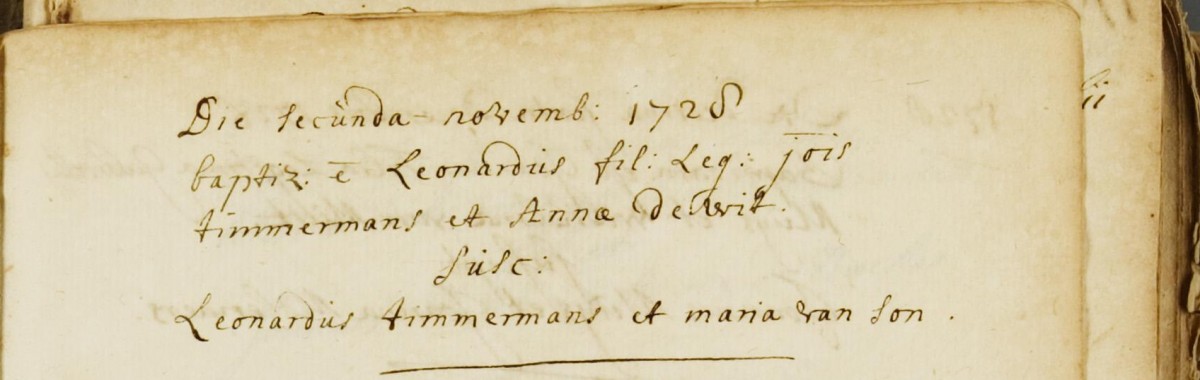 Die secunda novemb: 1728
baptiz: ē Leonardus fil: Leg: jōis
timmermans et Annæ de wit.
susc:
Leonardus timmermans et maria van son.